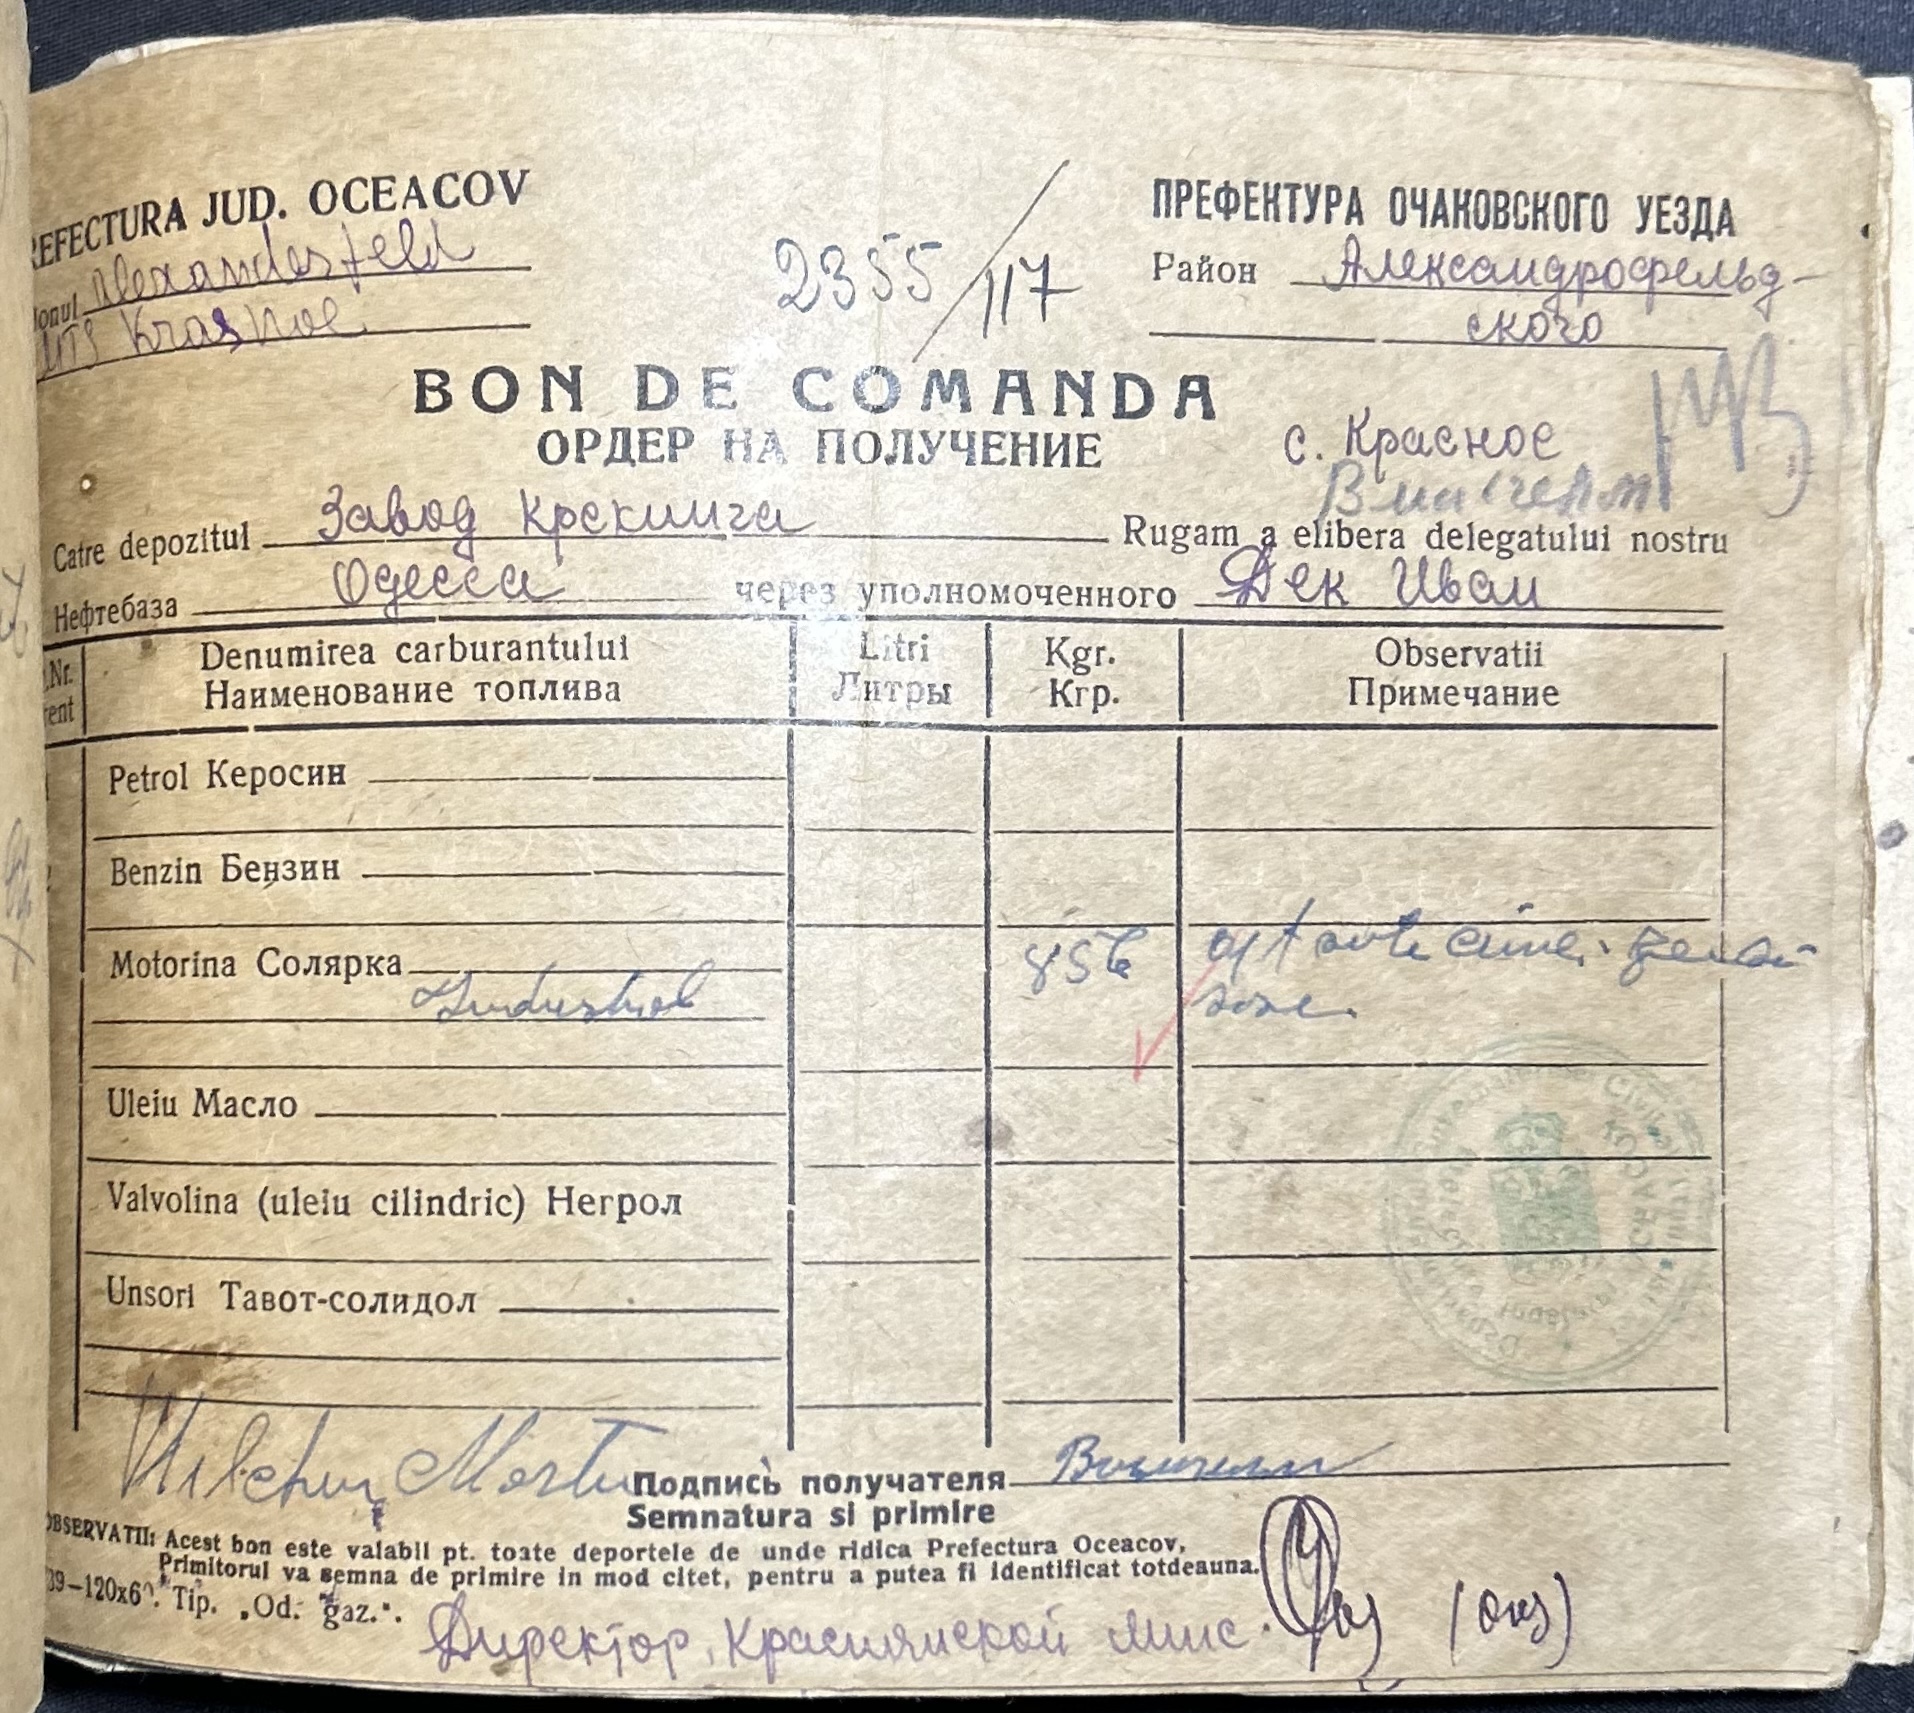 REFECTURA JUD. OCEACOV
onul Alexandesfeld
MTS Krasnoe
2355/117
ПРЕФЕКТУРА ОЧАКОВСКОГО УЕЗДА
Район Александрофельд-
ского
BON DE COMANDA
ОРДЕР НА ПОЛУЧЕНИЕ
с. Красное
Catre depozitul Завод Крекинга Rugam a elibera delegatului nostru
Нефтебаза Одесса через уполномоченного Дек Иван
.Nr. Denumirea carburantului Litri Kgr. Observatii
rent Наименование топлива Литры Кгр. Примечание
Petrol Керосин
Benzin Бензин
Motorina Солярка 856 opt sute cinci zeci si
Industrial sase.
Uleiu Масло
Valvolina (uleiu cilindric) Негрол
Unsori Тавот-солидол
Подпись получателя
Semnatura si primire
OBSERVATII: Acest bon este valabil pt. toate deportele de unde ridica Prefectura Oceacov.
Primitorul va semna de primire in mod citet, pentru a putea fi identificat totdeauna.
39—120x60. Tip. „Od. gaz.".
Директор, Краснянской мтс.